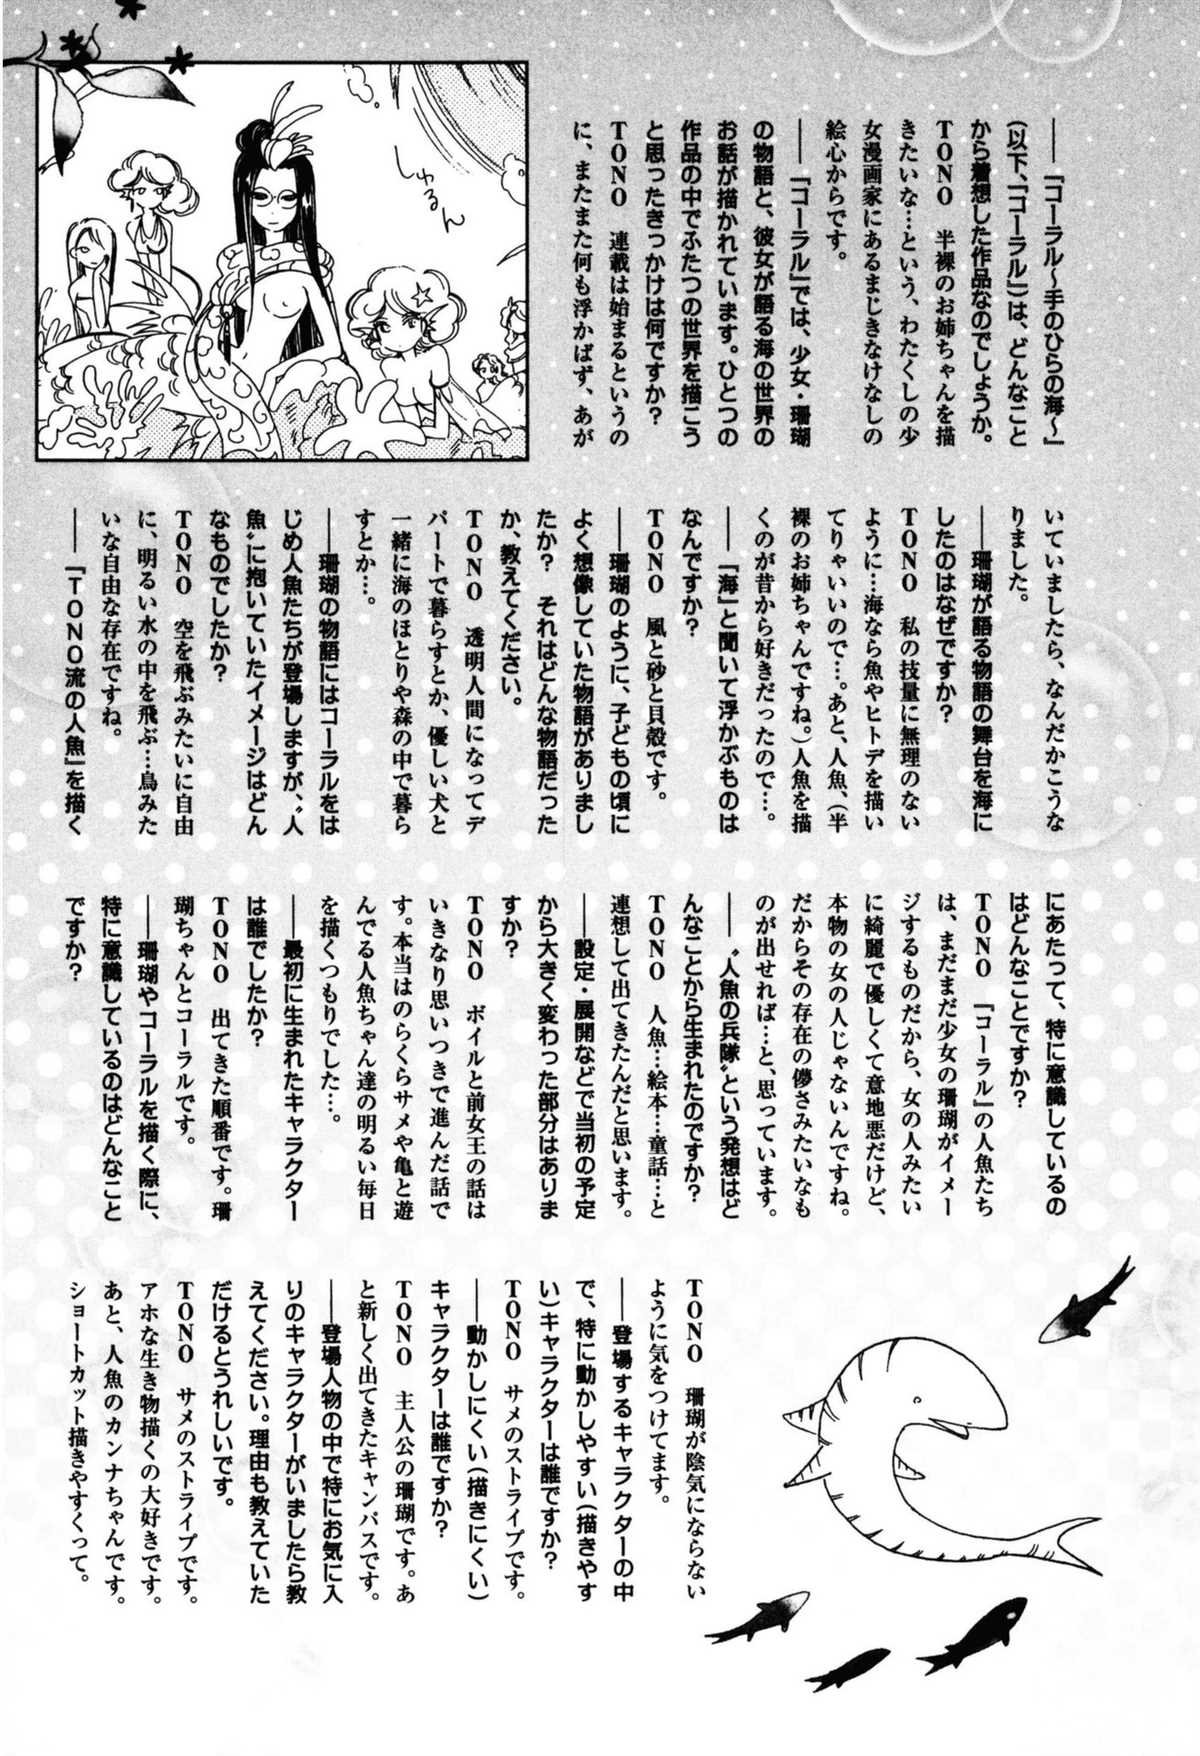 ――『コーラル～手のひらの海～』
(以下、『コーラル』)は、どんなこと
から着想した作品なのでしょうか。
TONO　半裸のお姉ちゃんを描
きたいな…という、わたくしの少
女漫画家にあるまじきなけなしの
絵心からです。
――『コーラル』では、少女・珊瑚
の物語と、彼女が語る海の世界の
お話が描かれています。ひとつの
作品の中でふたつの世界を描こう
と思ったきっかけは何ですか？
TONO　連載は始まるというの
に、またまた何も浮かばず、あが
しゅるん
いていましたら、なんだかこうな
りました。
――珊瑚が語る物語の舞台を海に
したのはなぜですか？
TONO　私の技量に無理のない
ように…海なら魚やヒトデを描い
てりゃいいので…。あと、人魚、(半
裸のお姉ちゃんですね。)人魚を描
くのが昔から好きだったので…。
――「海」と聞いて浮かぶものは
なんですか？
TONO　風と砂と貝殻です。
――珊瑚のように、子どもの頃に
よく想像していた物語がありまし
たか？　それはどんな物語だった
か、教えてください。
TONO　透明人間になってデ
パートで暮らすとか、優しい犬と
一緒に海のほとりや森の中で暮ら
すとか…。
――珊瑚の物語にはコーラルをは
じめ人魚たちが登場しますが、〝人
魚〟に抱いていたイメージはどん
なものでしたか？
TONO　空を飛ぶみたいに自由
に、明るい水の中を飛ぶ…鳥みた
いな自由な存在ですね。
――「TONO流の人魚」を描く
にあたって、特に意識しているの
はどんなことですか？
TONO　『コーラル』の人魚たち
は、まだまだ少女の珊瑚がイメー
ジするものだから、女の人みたい
に綺麗で優しくて意地悪だけど、
本物の女の人じゃないんですね。
だからその存在の儚さみたいなも
のが出せれば…と、思っています。
――〝人魚の兵隊〟という発想はど
んなことから生まれたのですか？
TONO　人魚…絵本…童話…と
連想して出てきたんだと思います。
――設定・展開などで当初の予定
から大きく変わった部分はありま
すか？
TONO　ボイルと前女王の話は
いきなり思いつきで進んだ話で
す。本当はのらくらサメや亀と遊
んでる人魚ちゃん達の明るい毎日
を描くつもりでした…。
――最初に生まれたキャラクター
は誰でしたか？
TONO　出てきた順番です。珊
瑚ちゃんとコーラルです。
――珊瑚やコーラルを描く際に、
特に意識しているのはどんなこと
ですか？
TONO　珊瑚が陰気にならない
ように気をつけてます。
――登場するキャラクターの中
で、特に動かしやすい(描きやす
い)キャラクターは誰ですか？
TONO　サメのストライプです。
――動かしにくい(描きにくい)
キャラクターは誰ですか？
TONO　主人公の珊瑚です。あ
と新しく出てきたキャンパスです。
――登場人物の中で特にお気に入
りのキャラクターがいましたら教
えてください。理由も教えていた
だけるとうれしいです。
TONO　サメのストライプです。
アホな生き物描くの大好きです。
あと、人魚のカンナちゃんです。
ショートカット描きやすくって。